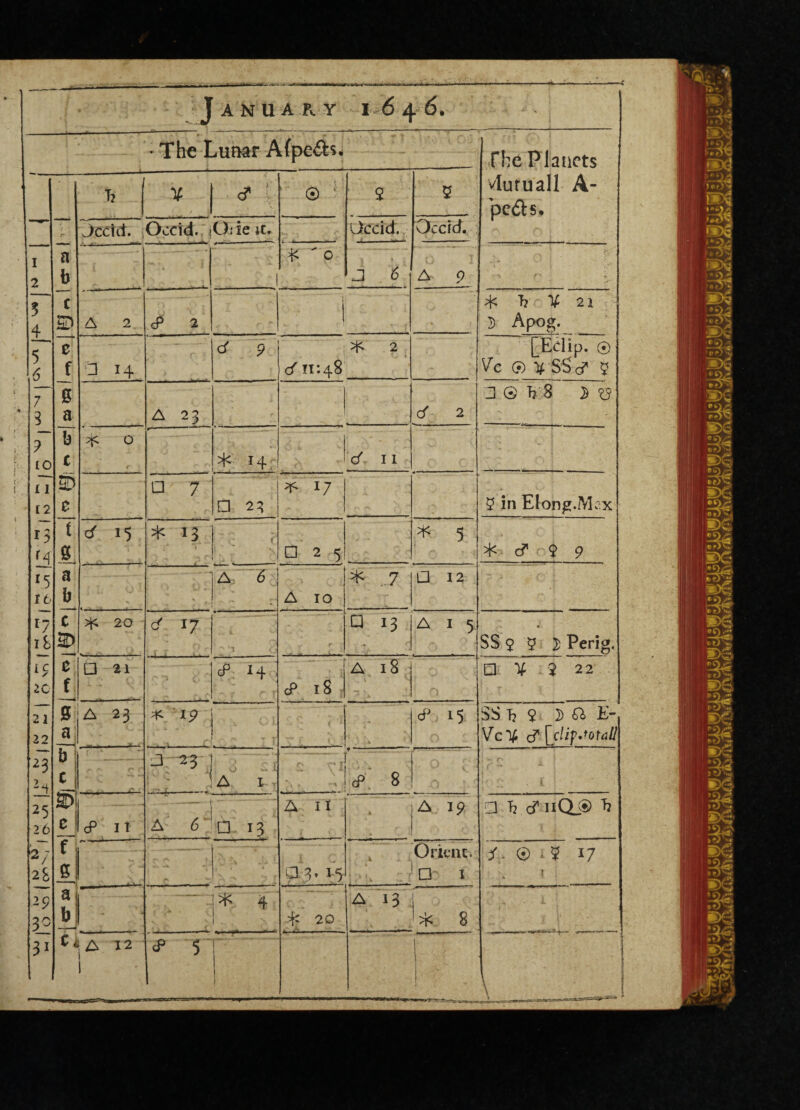 JANUARY 1646.
The Lunar Aſpects. The Planets
♄ ♃ ♂ ☉ ♀ ☿ Mutuall A-
Occid. Occid. Orient. Occid. Occid. pects.
1 a ⚹ 0
2 b □ 6 △ 9
3 c ⚹ ♄ ♃ 21
4 D △ 2 ☍ 2 ☽ Apog.
5 e ☌ 9 ⚹ 2 [Eclip. ☉
6 f □ 14 ☌ 11:48 Vc ☉ ♃ SS ♂ ☿
7 g □ ☉ ♄ 8 ☽ ☋
8 a △ 23 ☌ 2
9 b ⚹ 0
10 c ⚹ 14 ☌ 11
11 D □ 7 ⚹ 17
12 e □ 23 ☿ in Elong.Max
13 f ☌ 15 ⚹ 13 ⚹ 5
14 g □ 2 5 ⚹ ♂ ♀ 9
15 a △ 6 ⚹ 7 □ 12
16 b △ 10
17 c ⚹ 20 ☌ 17 □ 13 △ 1 5
18 D SS ♀ ☿ ☽ Perig.
19 e □ 21 ☍ 14 △ 18 □ ♃ ♀ 22
20 f ☍ 18
21 g △ 23 ⚹ 19 ☍ 15 SS ♄ ♀ ☽ ☊ E-
22 a Vc ♃ ♂ [clip.totall
23 b □ 23
24 c △ 1 ☍ 8
25 D △ 11 △ 19 □ ♄ ♂ 11 Q ☉ ♄
26 e ☍ 11 △ 6 □ 13
27 f Orient. ☌ ☉ ☿ 17
28 g □ 3. 15 □ 1
29 a ⚹ 4 △ 13
30 b ⚹ 20 ⚹ 8
31 c △ 12 ☍ 5